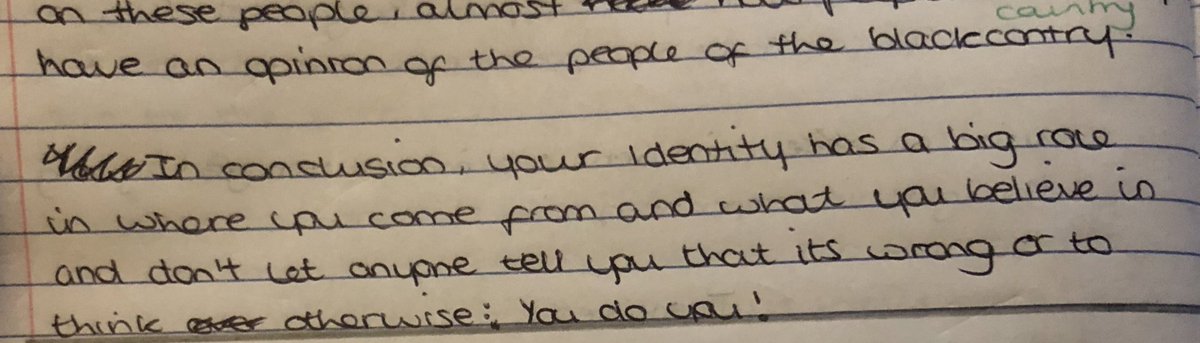 on these people, almost
country
have an opinion of the people of the blackcontry.
In conclusion, your identity has a big role
in where you come from and what you believe in
and don't let anyone tell you that its wrong or to
think otherwise: You do you!